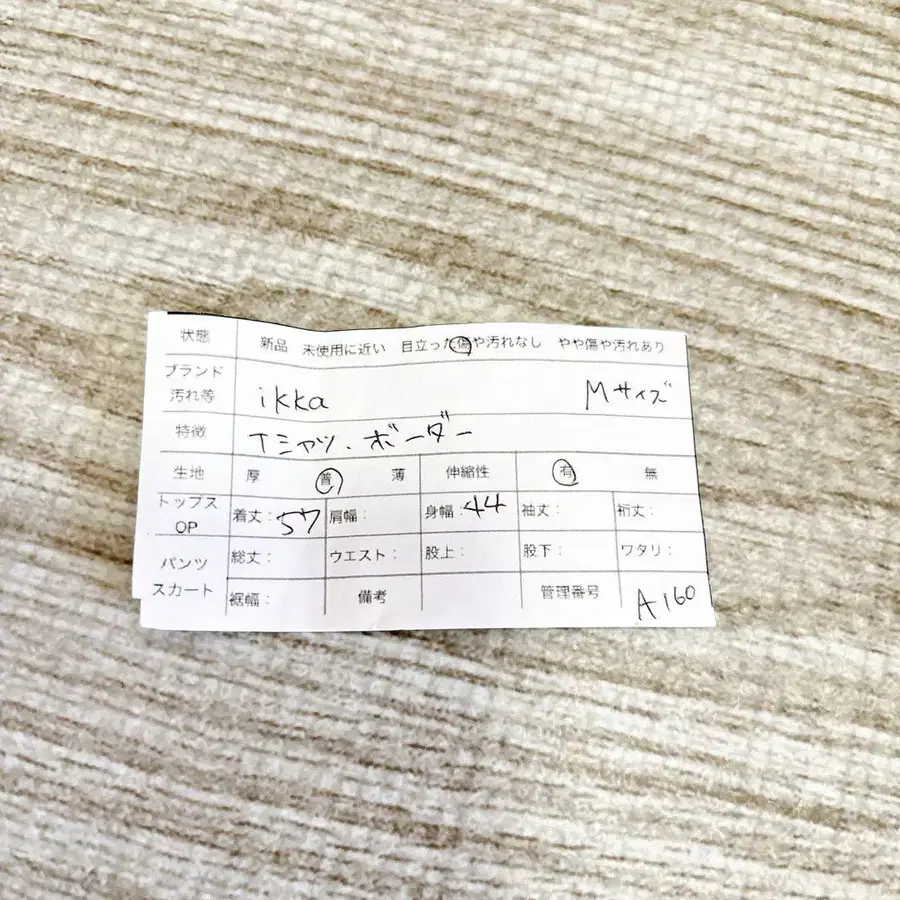 状態 新品 未使用に近い 目立った傷や汚れなし やや傷や汚れあり
ブランド
汚れ等 ikka Mサイズ
特徴 Tシャツ、ボーダー
生地 厚 普 薄 伸縮性 有 無
トップス
OP 着丈：57 肩幅： 身幅：44 袖丈： 裄丈：
パンツ
スカート 総丈： ウエスト： 股上： 股下： ワタリ：
裾幅： 備考 管理番号 A160